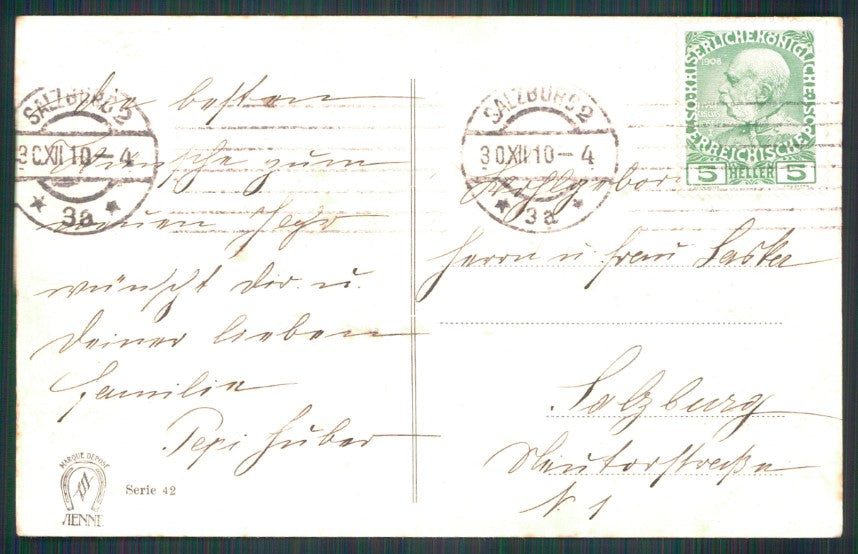 SALZBURG 2
30 XII 10–4
3a
SALZBURG 2
30 XII 10–4
3a
KAISERLICHE KÖNIGLICHE
1908
ÖSTERREICHISCHE
5 HELLER 5
Die besten
Wünsche zum
neuen Jahr
wünscht dir u.
deiner lieben
Familie
Pepi Huber
Wohlgebor.
Herrn u. Frau
Salzburg
Neutorstraße
N. 1
MARQUE DEPOSÉ
VIENNE
Serie 42